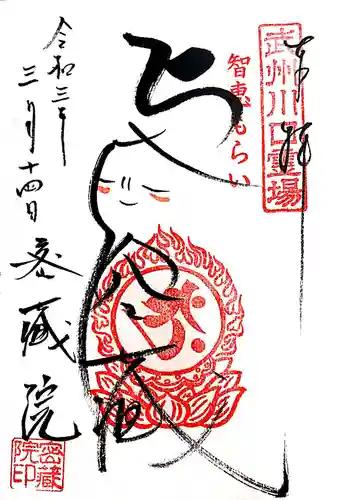 奉拝
武州川口霊場
智恵もらい
ち
え
八
蔵
令和三年
三月十四日
密蔵院
密蔵
院印